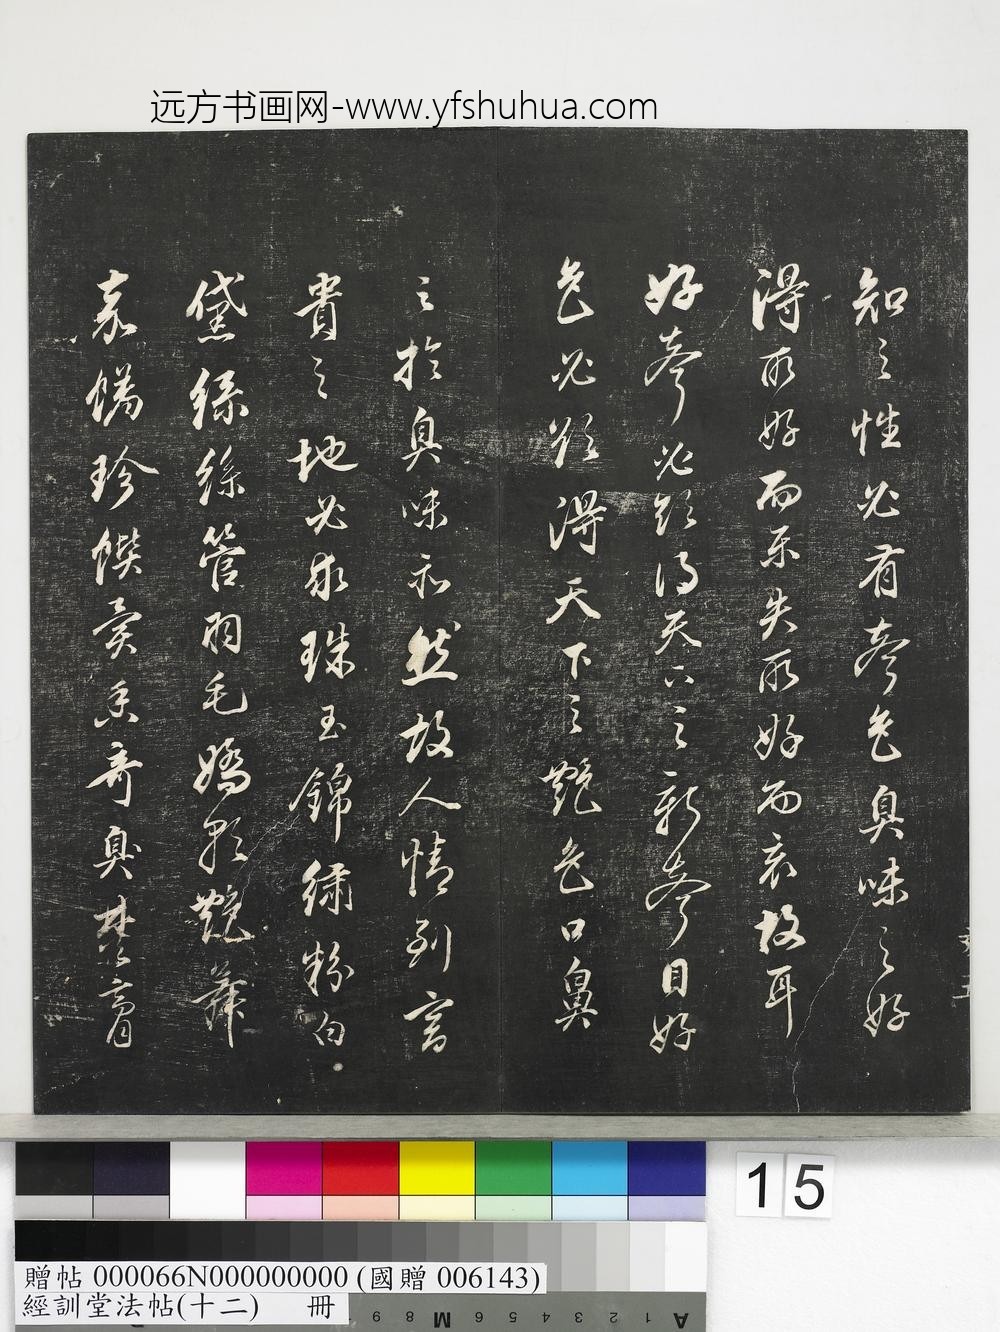 远方书画网-www.yfshuhua.com
知之性必有聲色臭味之好
得所好而樂失所好而哀故耳
好聲必欲得天下之新聲目好
色必欲得天下之艷色口鼻
之於臭味亦然故人情到富
貴之地必求珠玉錦繡粉白
黛綠絲管羽毛嬌歌艷舞
嘉餚珍饌異香奇臭焚膏
15
贈帖 000066N000000000 (國贈 006143)
經訓堂法帖(十二) 冊
A 1 2 3 4 5 6 M 8 9